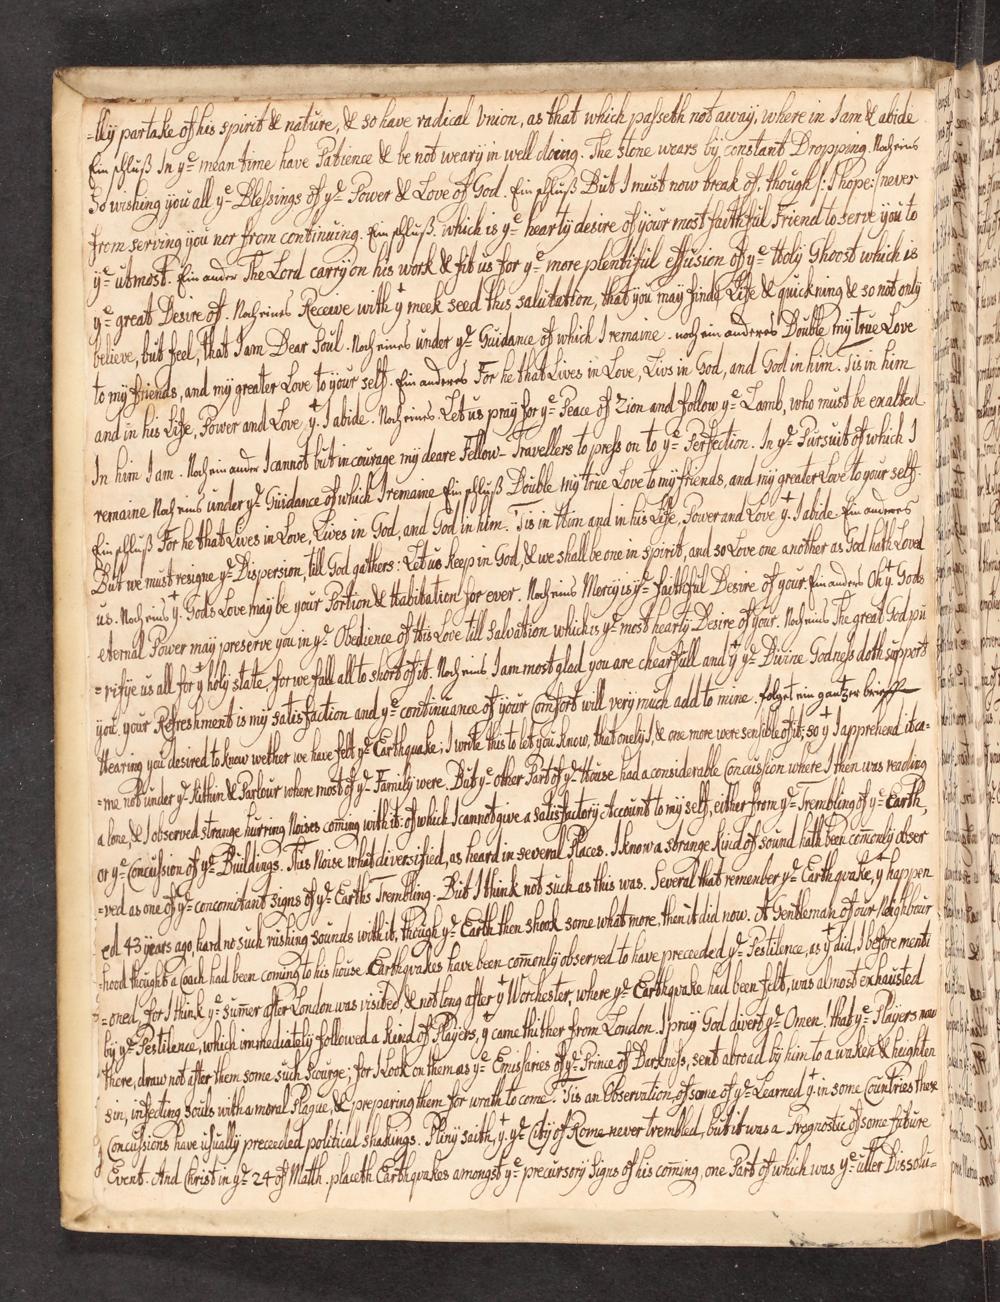 =lly partake of his spirit & nature, & so have radical Vnion, as that which passeth not away, where in I am & abide
Ein schluß In yᵉ mean time have Patience & be not weary in well doing. The stone wears by constant Dropping. Noch eins
So wishing you all yᵉ Blessings of yᵉ Power & Love of God. Ein schluß But I must now break of, though /: I hope :/ never
from serving you nor from continuing. Ein schluß. which is yᵉ hearty desire of your most faithful Friend to serve you to
yᵉ utmost. Ein ander The Lord carry on his work & fit us for yᵉ more plentiful effusion of yᵉ Holy Ghost which is
yᵉ great Desire of. Noch eines Receive with yᵗ meek seed this salutation, that you may finde Life & quickning & so not only
believe, but feel, that I am Dear Soul. Noch eines under yᵉ Guidance of which I remaine. noch ein anderes Double my true Love
to my friends, and my greater Love to your self. Ein anderes For he that Lives in Love, Livs in God, and God in him. Tis in him
and in his Life, Power and Love yᵗ I abide. Noch eines. Let us pray for yᵉ Peace of Zion and follow yᵉ Lamb, who must be exalted
In him I am. Noch ein ander I cannot but incourage my deare Fellow-Travellers to press on to yᵉ Perfection. In yᵉ Pursuit of which I
remaine Noch eins under yᵉ Guidance of which I remaine Ein schluß Double my true Love to my friends, and my greater Love to your self.
Ein schluß For he that Lives in Love, Lives in God, and God in him. Tis in Him and in his Life, Power and Love yᵗ I abide. Ein anderes
But we must resigne yᵉ Dispersion, till God gathers: Let us keep in God, & we shall be one in spirit, and so Love one another as God hath Loved
us. Noch eins yᵗ Gods Love may be your Portion & Habitation for ever. Noch eins Mercy is yᵉ faithful Desire of your. Ein anders Oh yᵗ Gods
eternal Power may preserve you in yᵉ Obedience of His Love till Salvation which is yᵉ most hearty Desire of your. Noch eins The great God pu
=rifye us all for yᵗ holy state, for we fall all to short of it. Noch eins I am most glad you are chearfull and yᵗ yᵉ Divine Godness doth support
you, your Refreshment is my satisfaction and yᵉ continuance of your Comfort will very much add to mine. folget ein gantzer brieff
Hearing you desired to know wether we have felt yᵉ Earthquake; I write this to let you know, that onely I, & one more were sensible of it; so yᵗ I apprehend it ca=
=me not under yᵉ Kithin & Parlour where most of yᵉ Family were. But yᵉ other Part of yᵉ House had a considerable Concussion where I then was reading
alone, & I observed strange hurring Noises coming with it: of which I cannot give a satisfactory Account to my self, either from yᵉ Trembling of yᵉ Earth,
or yᵉ Concussion of yᵉ Buildings. This Noise what diversified, as heard in several Places. I know a strange kind of sound hath been com̅only obser
=ved as one of yᵉ concomitant signs of yᵉ Earths Trembling. But I think not such as this was. Several that remember yᵉ Earthqvake, yᵗ happen
ed 43 years ago, hard no such rushing sounds with it, though yᵉ Earth then shook some what more, then it did now. A Gentleman of our Neighbour
=hood thought a Coach had been coming to his house. Earthqvakes have been com̅only observed to have preceeded yᵉ Pestilence, as yᵗ did, I before menti
=oned, for I think yᵉ sum̅er after London was visited, & not long after yᵗ Worchester, where yᵉ Earthqvake had been felt, was almost exhausted
by yᵉ Pestilence, which immediately followed a kind of Players, yᵗ came thither from London. I pray God divert yᵉ Omen! that yᵉ Players now
there, draw not after them some such Scourge; for I Look on them as yᵉ Emissaries of yᵉ Prince of Darkness, sent abroad by him to awaken & heighten
sin, infecting souls with a moral Plague, & preparing them for wrath to come. Tis an Observation of some of yᵉ Learned yᵗ in some Countries these
Concussions have usually preceeded political shakings. Pliny saith, yᵗ yᵉ City of Rome never trembled, but it was a Prognostic of some future
Event. And Christ in yᵉ 24 of Matth. placeth Earthqvakes amongst yᵉ precursory Signs of his com̅ing, one Part of which was yᵉ utter Dissolu=